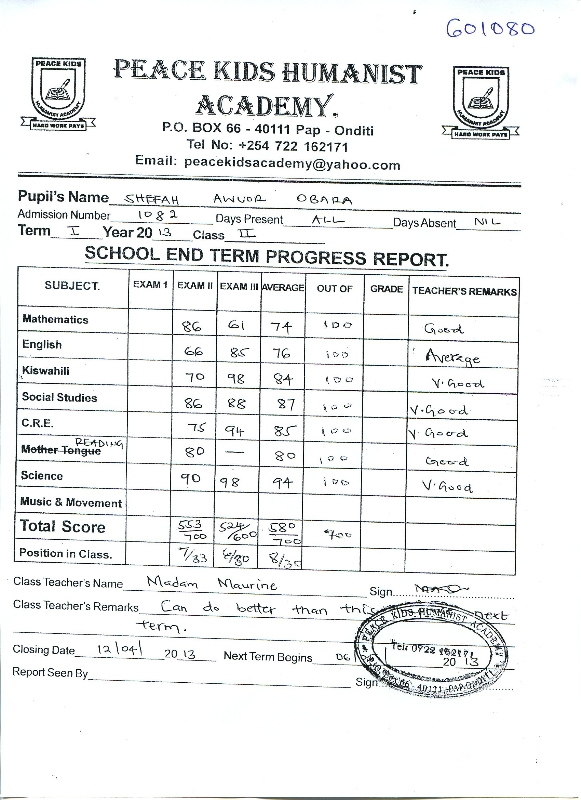 601080
PEACE KIDS
HUMANIST ACADEMY
HARD WORK PAYS
PEACE KIDS HUMANIST
ACADEMY.
P.O. BOX 66 - 40111 Pap - Onditi
Tel No: +254 722 162171
Email: peacekidsacademy@yahoo.com
PEACE KIDS
HUMANIST ACADEMY
HARD WORK PAYS
Pupil's Name SHEFAH AWUOR OBARA
Admission Number 1082 Days Present ALL Days Absent NIL
Term I Year 2013 Class II
SCHOOL END TERM PROGRESS REPORT.
SUBJECT. EXAM 1 EXAM II EXAM III AVERAGE OUT OF GRADE TEACHER'S REMARKS
Mathematics 86 61 74 100 Good
English 66 85 76 100 Average
Kiswahili 70 98 84 100 V.Good
Social Studies 86 88 87 100 V.Good
C.R.E. 75 94 85 100 V.Good
READING
Mother Tongue 80 — 80 100 Good
Science 90 98 94 100 V.Good
Music & Movement
Total Score 553/700 524/600 580/700 700
Position in Class. 7/33 /30 8/35
Class Teacher's Name Madam Maurine Sign
Class Teacher's Remarks Can do better than this next
term.
Closing Date 12/04/ 2013 Next Term Begins 06 2013
Report Seen By Sign
PEACE KIDS HUMANIST ACADEMY
Tel: 0722 162171
66, 40111, PAP-ONDITI